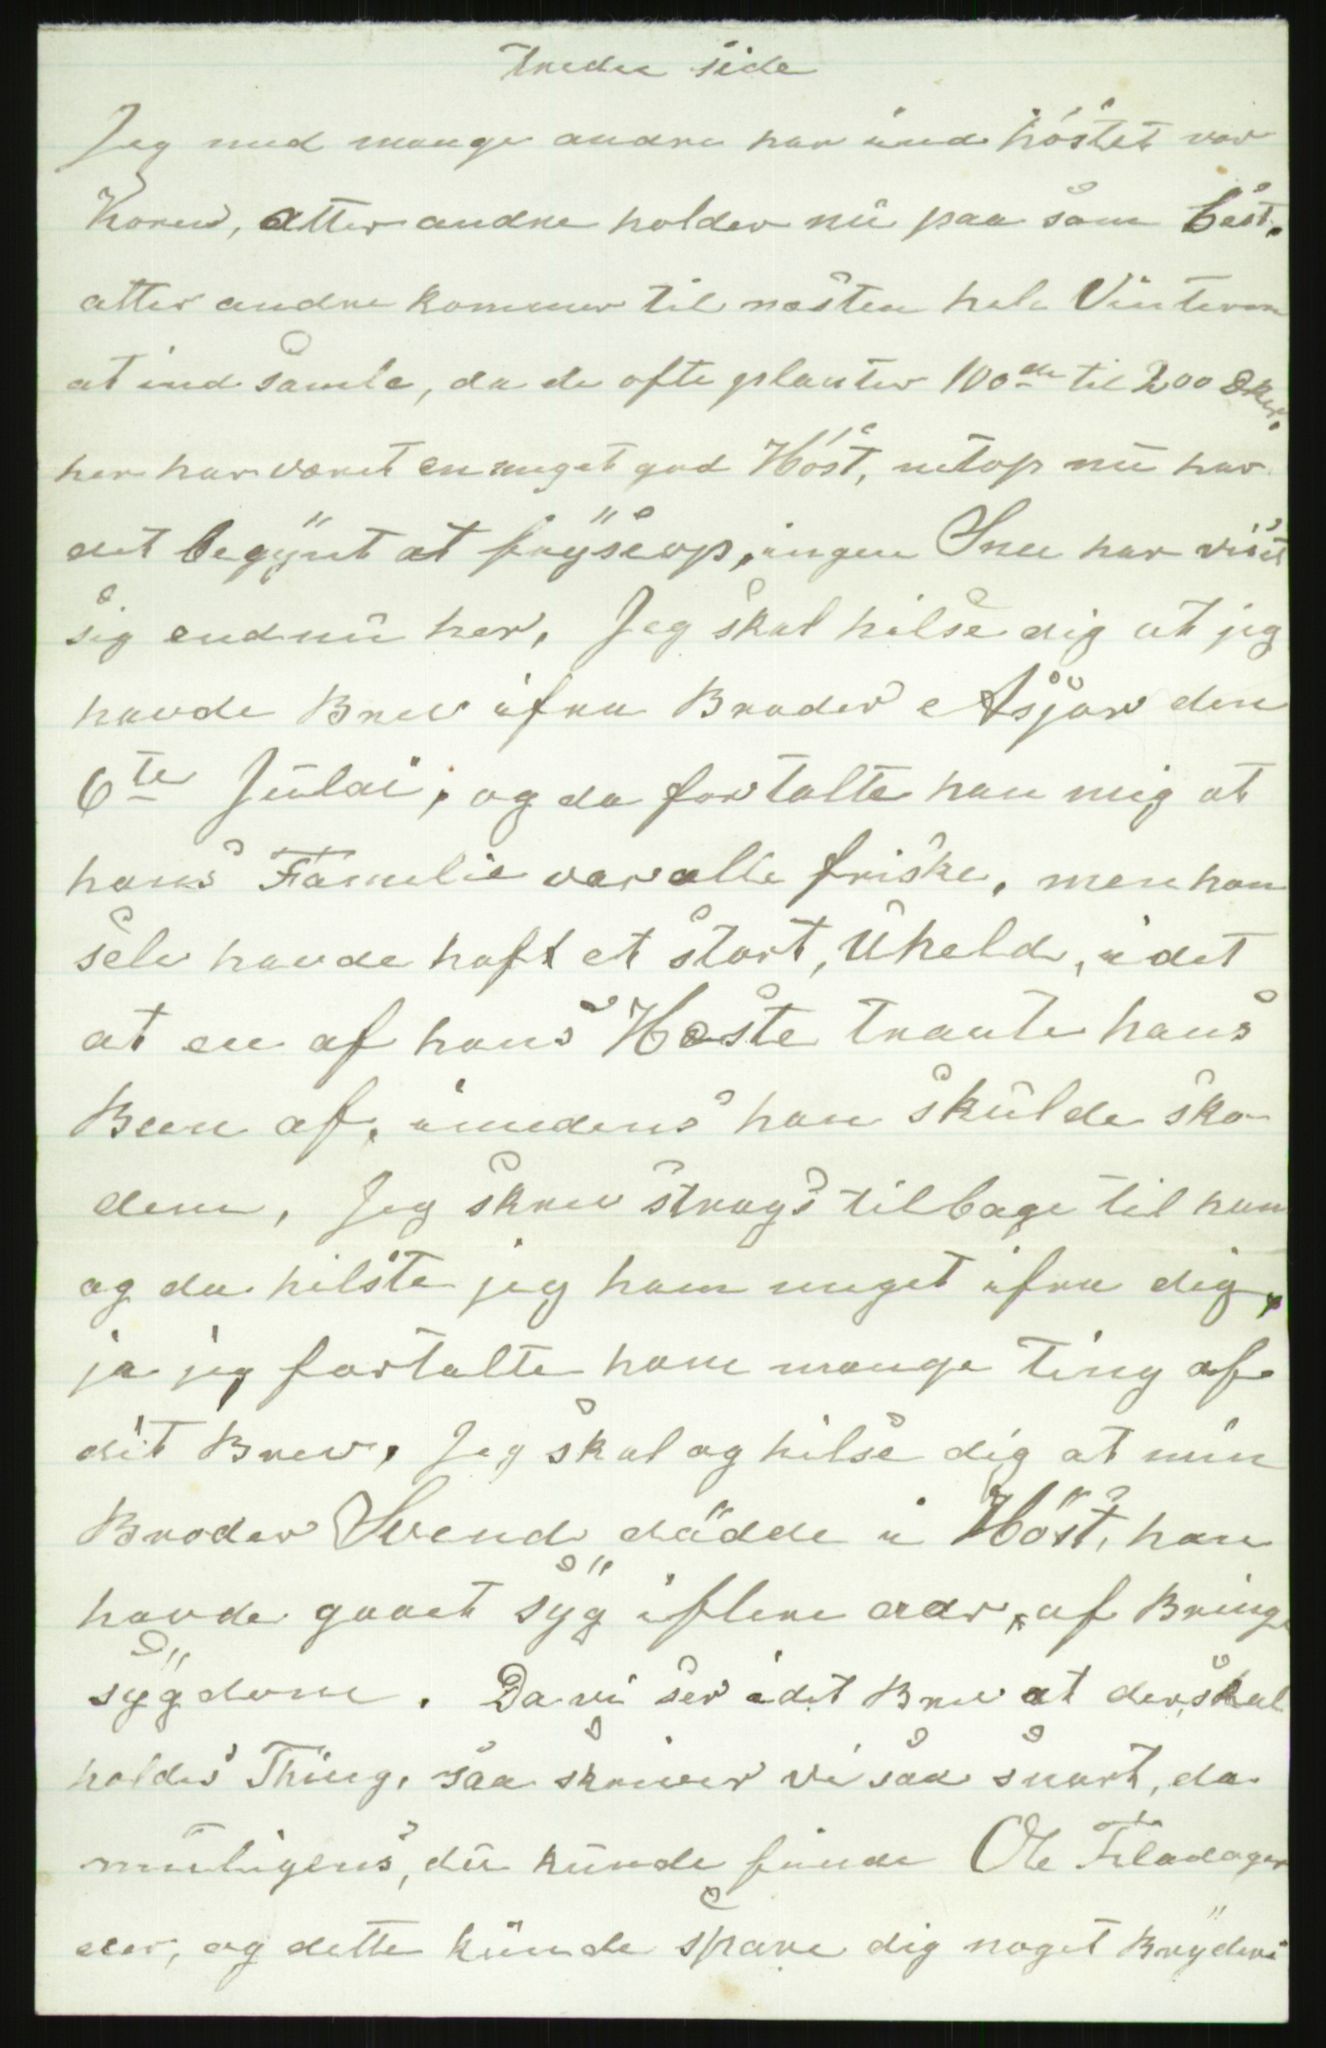 tredee side
Jeg med mange andre har ind höstet vor
Koren, atter andre holder nu paa som bäst,
atter andre kommer til næsten hele Vinteren
at ind samle, da de ofte planter 100de til 200 Eker.
her har været en meget god Höst, netop nu har
det begÿnt at frÿse op, ingen Snee har vist
sig endnu her, Jeg skal hilse dig at jeg
havde Brev ifra Broder Asjør den
6te Julai, og da fortalte han mig at
hans Familie var alle friske, men han
selv havde haft et stort, Uheld, idet
at en af hans Heste traate hans
Been af, imedens han skulde sko
dem, Jeg skrev strags tilbage til ham
og da hilste jeg ham meget ifra dig,
ja jeg fortalte ham mange ting af
dit Brev, Jeg skal og hilse dig at min
Broder Svend dödde i Höst, han
havde gaaet sÿg i flere aar, af Bringe
sÿgdom. Da vi ser i dit Brev at der skal
holdes Thing, saa skriver vi saa snart, da
muligens, du kunde finde Ole Fladager
der, og dette kunde spare dig noget Brÿderi